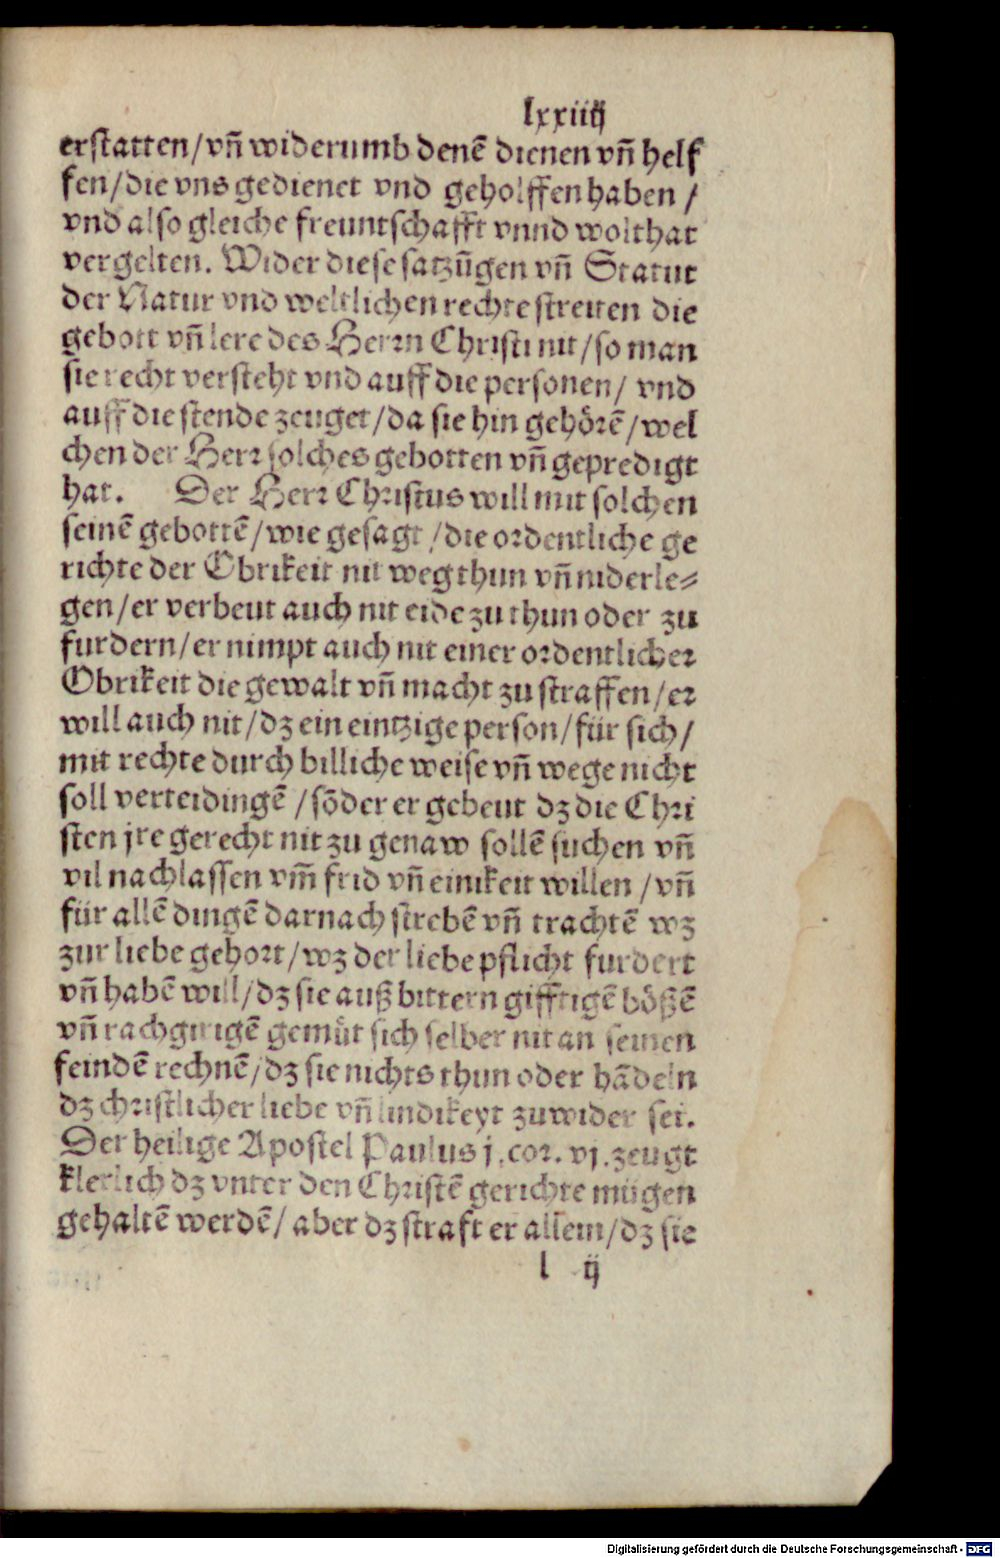 lxxiiij
erstatten/vñ widerumb denē dienen vñ helf
fen/die vns gedienet vnd geholffen haben /
vnd also gleiche freuntschafft vnnd wolthat
vergelten. Wider diese satzūgen vñ Statut
der Natur vnd weltlichen rechte streiten die
gebott vñ lere des Herrn Christi nit/so man
sie recht versteht vnd auff die personen/ vnd
auff die stende zeuget/da sie hin gehörē/wel
chen der Herr solches gebotten vñ gepredigt
hat. Der Herr Christus will mit solchen
seinē gebottē/wie gesagt /die ordentliche ge
richte der Obrikeit nit weg thun vñ niderle⸗
gen/er verbeut auch nit eide zu thun oder zu
furdern/er nimpt auch nit einer ordentlicher
Obrikeit die gewalt vñ macht zu straffen/er
will auch nit/dz ein eintzige person/für sich/
mit rechte durch billiche weise vñ wege nicht
soll verteidingē /sōder er gebeut dz die Chri
sten jre gerecht nit zu genaw sollē suchen vñ
vil nachlassen vm̄ frid vñ einikeit willen /vñ
für allē dingē darnach strebē vñ trachtē wz
zur liebe gehort/wz der liebe pflicht furdert
vñ habē will/dz sie auß bittern gifftigē bößē
vñ rachgirigē gemüt sich selber nit an seinen
feindē rechnē/dz sie nichts thun oder hādeln
dz christlicher liebe vñ lindikeyt zuwider sei.
Der heilige Apostel Paulus j.cor. vj.zeugt
klerlich dz vnter den Christē gerichte mügen
gehaltē werdē/ aber dz straft er allein/dz sie
l ij
Digitalisierung gefördert durch die Deutsche Forschungsgemeinschaft - DFG